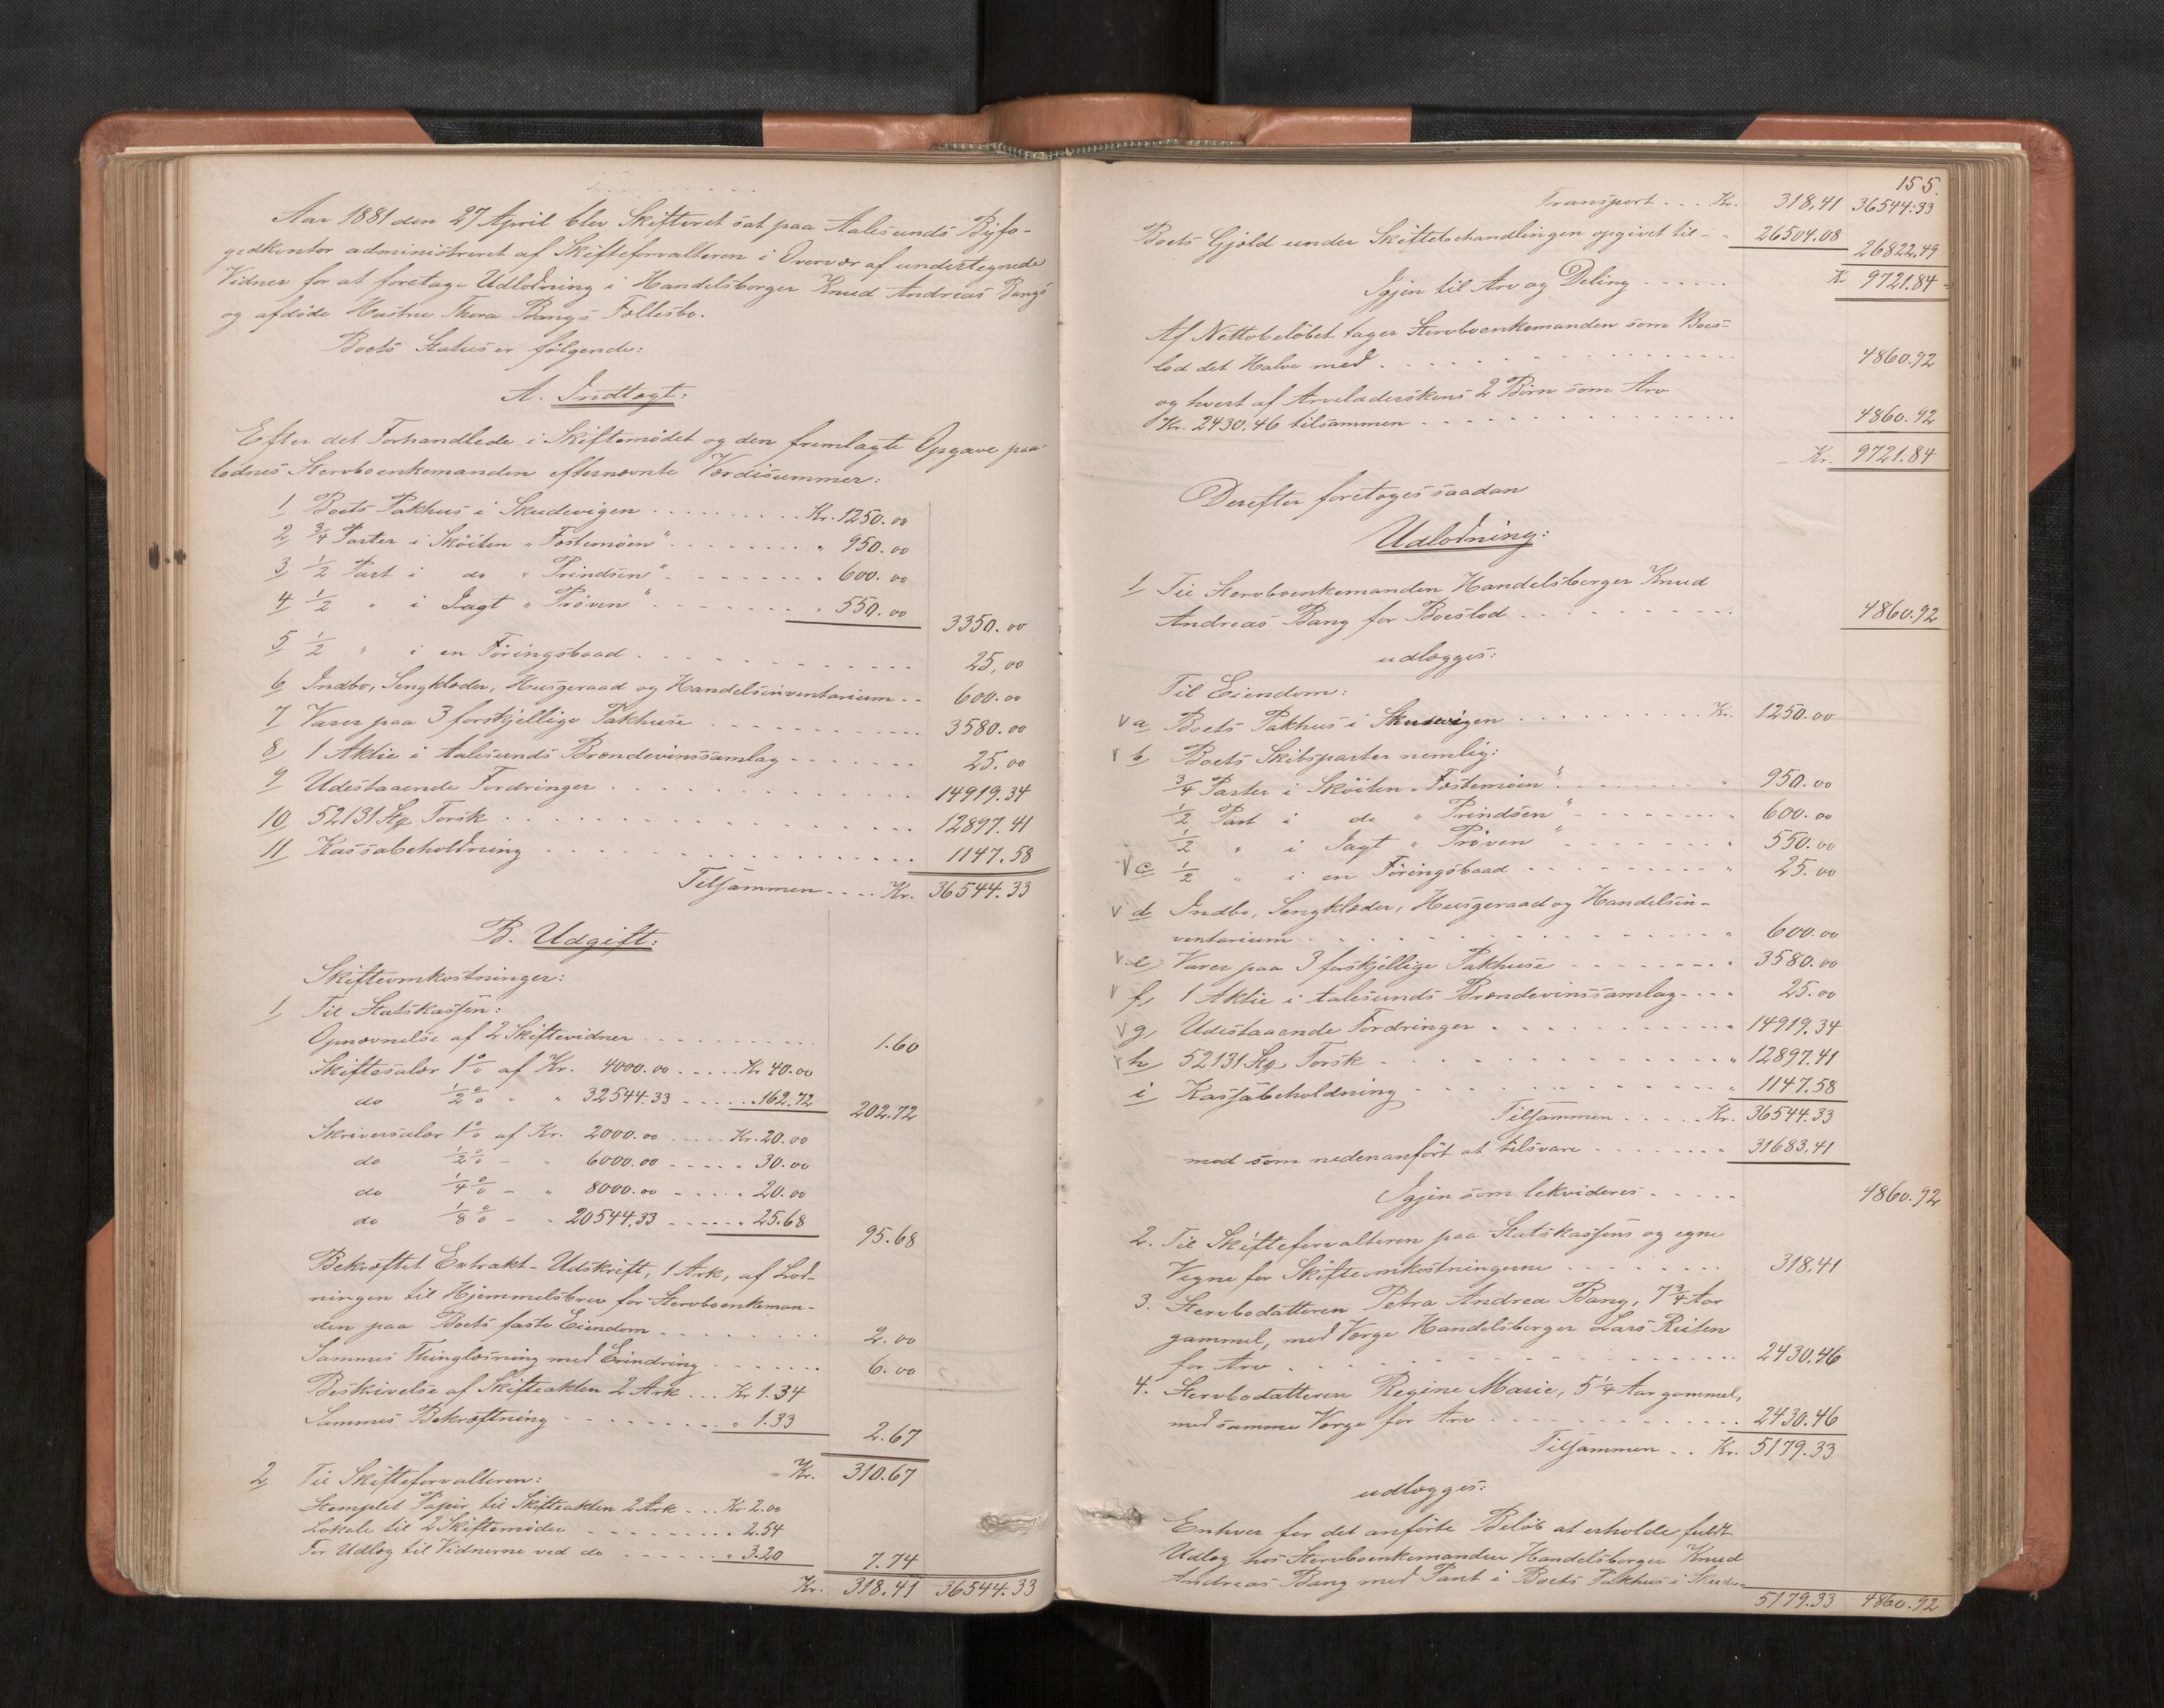 Aar 1881 den 27 April blev Skifteret sat paa Aalesunds Byfo-
gedkontor administreret af Skifteforvalteren i Overvær af undertegnede
Vidner for at foretage Udlodning i Handelsborger Knud Andreas Bangs
og afdøde Hustru Thora Bangs Fællesbo.
Boets Status er følgende:
A. Indtægt:
Efter det Forhandlede i Skiftemødet og den fremlagte Opgave paa-
lodnes Stervboenkemanden efternævnte Værdisummer:
1 Boets Pakhus i Skudevigen . . . Kr. 1250.00
2 3/4 Parter i Skøiten „Fostemøen“ . . . " 950.00
3 1/2 Part i do „Prindsen“ . . . " 600.00
4 1/2 " i Jagt „Prøven“ . . . " 550.00 3350.00
5 1/2 " i en Føringsbaad . . . 25.00
6 Indbo, Sengklæder, Husgeraad og Handelsinventarium . . 600.00
7 Varer paa 3 forskjellige Pakhuse . . . 3580.00
8 1 Aktie i Aalesunds Brændevinssamlag . . . 25.00
9 Udestaaende Fordringer . . . 14919.34
10 52131 Stk Torsk . . . 12897.41
11 Kassabeholdning . . . 1147.58
Tilsammen . . . Kr. 36544.33
B. Udgift:
Skifteomkostninger:
1 Til Statskassen:
Opnævnelse af 2 Skiftevidner . . . 1.60
Skiftesalær 1 % af Kr. 4000.00 . . . Kr 40.00
do 1/2 % " " 32544.33 . . . " 162.72 202.72
Skriversalær 1 % af Kr. 2000.00 . . . Kr. 20.00
do 1/2 % – " 6000.00 . . . " 30.00
do 1/4 % – " 8000.00 . . . " 20.00
do 1/8 % – " 20544.33 . . . " 25.68 95.68
Bekræftet Extrakt-Udskrift, 1 Ark, af Lod-
ningen til Hjemmelsbrev for Stervboenkeman-
den paa Boets faste Eiendom . . . 2.00
Sammes Thinglæsning med Erindring . . . 6.00
Beskrivelse af Skifteakten 2 Ark . . . Kr 1.34
Sammes Bekræftning . . . " 1.33 2.67
Kr. 310.67
2 Til Skifteforvalteren:
Stemplet Papir til Skifteakten 2 Ark . . . Kr. 2.00
Lokale til 2 Skiftemøder . . . 2.54
For Udlæg til Vidnerne ved do . . . " 3.20 7.74
Kr. 318.41 36544.33
155.
Transport . . . Kr. 318.41 36544.33
Boets Gjæld under Skiftebehandlingen opgivet til – " 26504.08 26822.49
Igjen til Arv og Deling . . . Kr 9721.84
Af Nettobeløbet tager Stervboenkemanden som Boes-
lod det Halve med . . . 4860.92
og hvert af Arveladerskens 2 Børn som Arv
Kr. 2430.46 tilsammen . . . 4860.92
Kr. 9721.84
Derefter foretoges saadan
Udlodning:
1 Til Stervboenkemanden Handelsborger Knud
Andreas Bang for Boeslod . . . 4860.92
udlægges:
Til Eiendom:
a Boets Pakhus i Skudevigen . . . Kr. 1250.00
b Boets Skibsparter nemlig:
3/4 Parter i Skøiten „Fostemøen“ . . . " 950.00
1/2 Part i do „Prindsen“ . . . " 600.00
1/2 " i Jagt „Prøven“ . . . " 550.00
c 1/2 " i en Føringsbaad . . . " 25.00
d Indbo, Sengklæder, Husgeraad og Handelsin-
ventarium . . . " 600.00
e Varer paa 3 forskjellige Pakhuse . . . " 3580.00
f 1 Aktie i Aalesunds Brændevinssamlag . . . 25.00
g Udestaaende Fordringer . . . " 14919.34
h 52131 Stk Torsk . . . " 12897.41
i Kassabeholdning . . . " 1147.58
Tilsammen . . . Kr. 36544.33
mod som nedenanført at tilsvare . . . " 31683.41
Igjen som lekvideres . . . 4860.92
2. Til Skifteforvalteren paa Statskassens og egne
Vegne for Skifteomkostningerne . . . 318.41
3. Stervbodatteren Petra Andrea Bang, 7 3/4 Aar
gammel, med Værge Handelsborger Lars Reiten
for Arv . . . 2430.46
4. Stervbodatteren Regine Marie, 5 1/4 Aar gammel,
med samme Værge for Arv . . . 2430.46
Tilsammen . . Kr. 5179.33
udlægges:
Enhver for det anførte Beløb at erholde fuldt
Udlæg hos Stervboenkemanden Handelsborger Knud
Andreas Bang med Pant i Boets Pakhus i Skude-
5179.33 4860.92